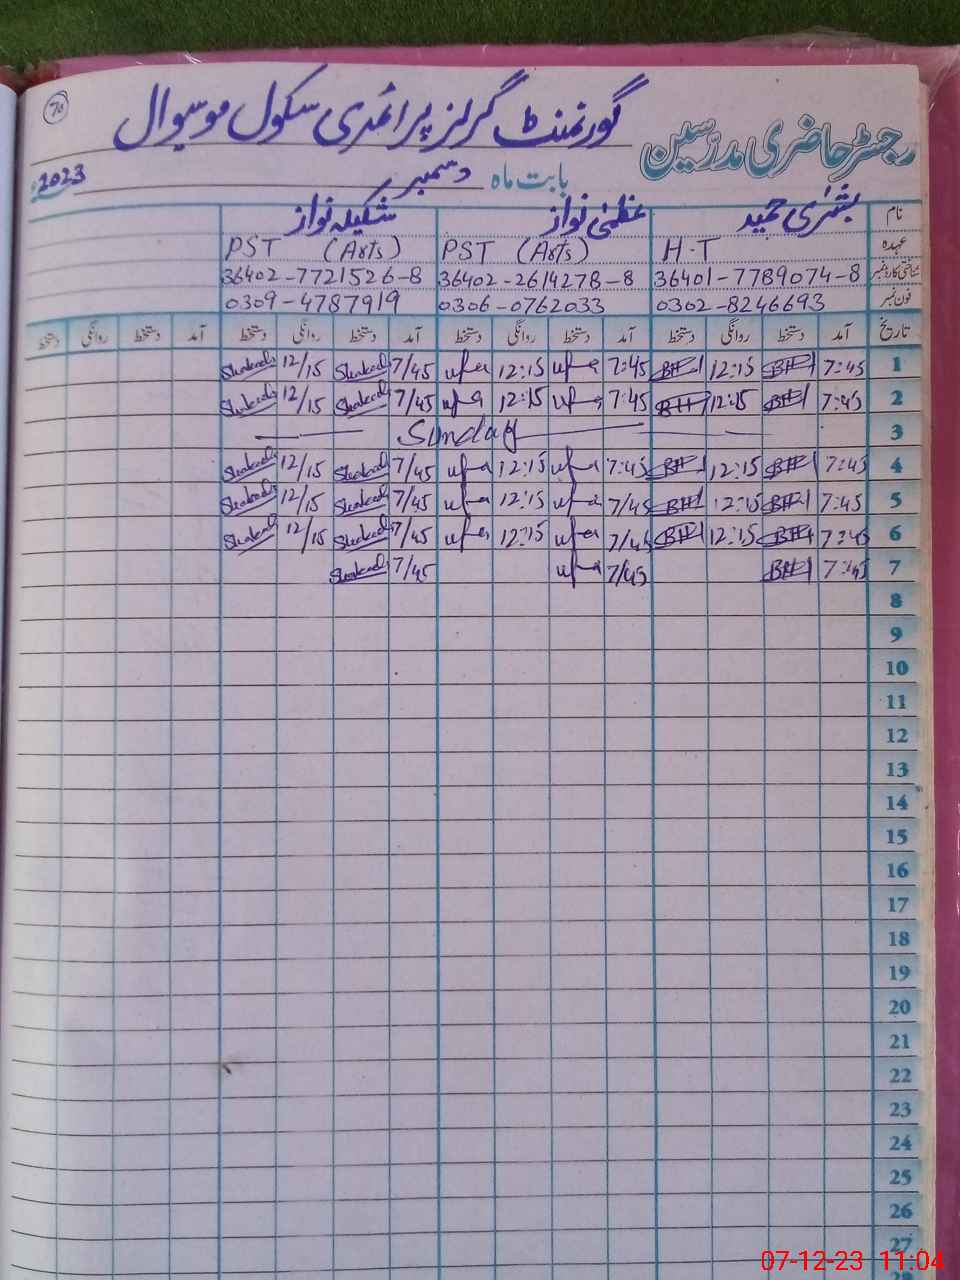 70
گورنمنٹ گرلز پرائمری سکول موسیوال
رجسٹر حاضری مدرسین
بابت ماہ دسمبر 2023ء
نام بشریٰ حمید عظمیٰ نواز شکیلہ نواز
عہدہ H.T PST (Arts) PST (Arts)
شناختی کارڈ نمبر 36401-7789074-8 36402-2614278-8 36402-7721526-8
فون نمبر 0302-8246693 0306-0762033 0309-4787919
تاریخ آمد دستخط روانگی دستخط آمد دستخط روانگی دستخط آمد دستخط روانگی دستخط آمد دستخط روانگی دستخط
1 7:45 BH 12:15 BH 7:45 12:15 7/45 Shakeela 12/15 Shakeela
2 7:45 BH 12:15 BH 7:45 12:15 7/45 Shakeela 12/15 Shakeela
3 Sunday
4 7:45 BH 12:15 BH 7:45 12:15 7/45 Shakeela 12/15 Shakeela
5 7:45 BH 12:15 BH 7/45 12:15 7/45 Shakeela 12/15 Shakeela
6 7:45 BH 12:15 BH 7/45 12:15 7/45 Shakeela 12/15 Shakeela
7 7:45 BH 7/45 7/45 Shakeela
8
9
10
11
12
13
14
15
16
17
18
19
20
21
22
23
24
25
26
27
28
07-12-23 11:04